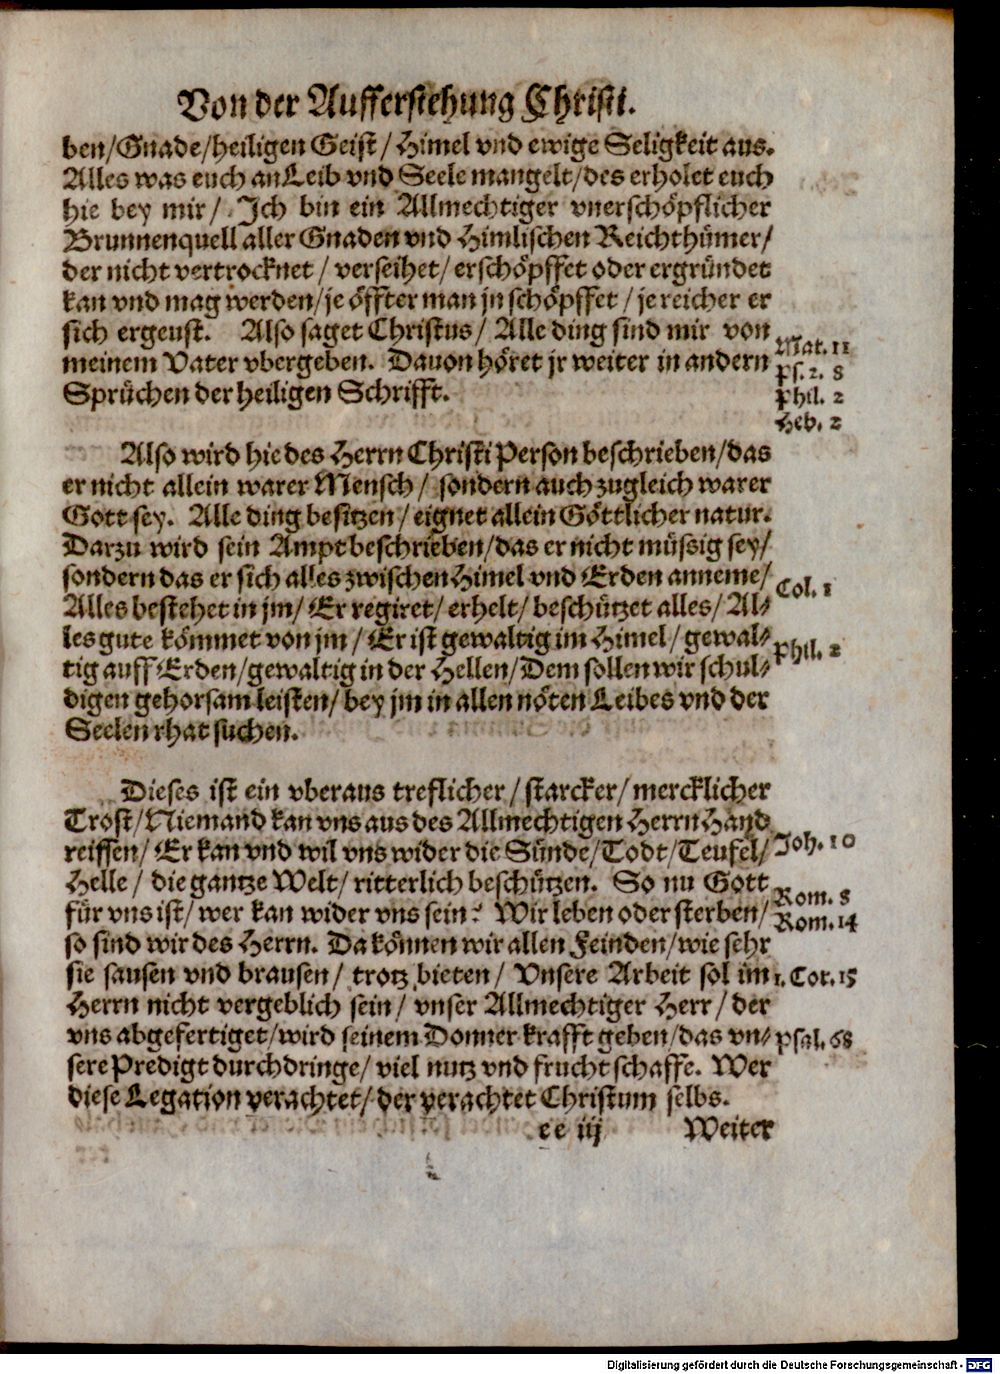 Von der Aufferstehung Christi.
ben/Gnade/heiligen Geist/ Himel vnd ewige Seligkeit aus.
Alles was euch an Leib vnd Seele mangelt/des erholet euch
hie bey mir/ Ich bin ein Allmechtiger vnerschöpflicher
Brunnenquell aller Gnaden vnd Himlischen Reichthümer/
der nicht vertrocknet / verseihet/ erschöpffet oder ergründet
kan vnd mag werden/je öffter man jn schöpffet / je reicher er
sich ergeust. Also saget Christus/ Alle ding sind mir von
Mat. 11
meinem Vater vbergeben. Dauon höret jr weiter in andern
Ps. 2. 8
Sprüchen der heiligen Schrifft.
Phil. 2
Heb. 2
Also wird hie des Herrn Christi Person beschrieben/das
er nicht allein warer Mensch/ sondern auch zugleich warer
Gott sey. Alle ding besitzen/ eignet allein Göttlicher natur.
Darzu wird sein Ampt beschrieben/das er nicht müssig sey/
sondern das er sich alles zwischen Himel vnd Erden anneme/
Col. 1
Alles bestehet in jm/ Er regiret/ erhelt/ beschützet alles/ Al-
les gute kömmet von jm/ Er ist gewaltig im Himel/ gewal-
Phil. 2
tig auff Erden/gewaltig in der Hellen/Dem sollen wir schul-
digen gehorsam leisten/ bey jm in allen nöten Leibes vnd der
Seelen rhat suchen.
Dieses ist ein vberaus treflicher/ starcker/ mercklicher
Trost/Niemand kan vns aus des Allmechtigen Herrn Hand
reissen/ Er kan vnd wil vns wider die Sünde/Todt/Teufel/
Joh. 10
Helle / die gantze Welt/ ritterlich beschützen. So nu Gott
Rom. 8
für vns ist/ wer kan wider vns sein? Wir leben oder sterben/
Rom. 14
so sind wir des Herrn. Da können wir allen Feinden/wie sehr
sie sausen vnd brausen/ trotz bieten/ Vnsere Arbeit sol im
1. Cor. 15
Herrn nicht vergeblich sein/ vnser Allmechtiger Herr/ der
vns abgefertiget/wird seinem Donner krafft geben/das vn-
Psal. 68
sere Predigt durchdringe/ viel nutz vnd frucht schaffe. Wer
diese Legation verachtet/der verachtet Christum selbs.
ee iij Weiter
Digitalisierung gefördert durch die Deutsche Forschungsgemeinschaft - DFG